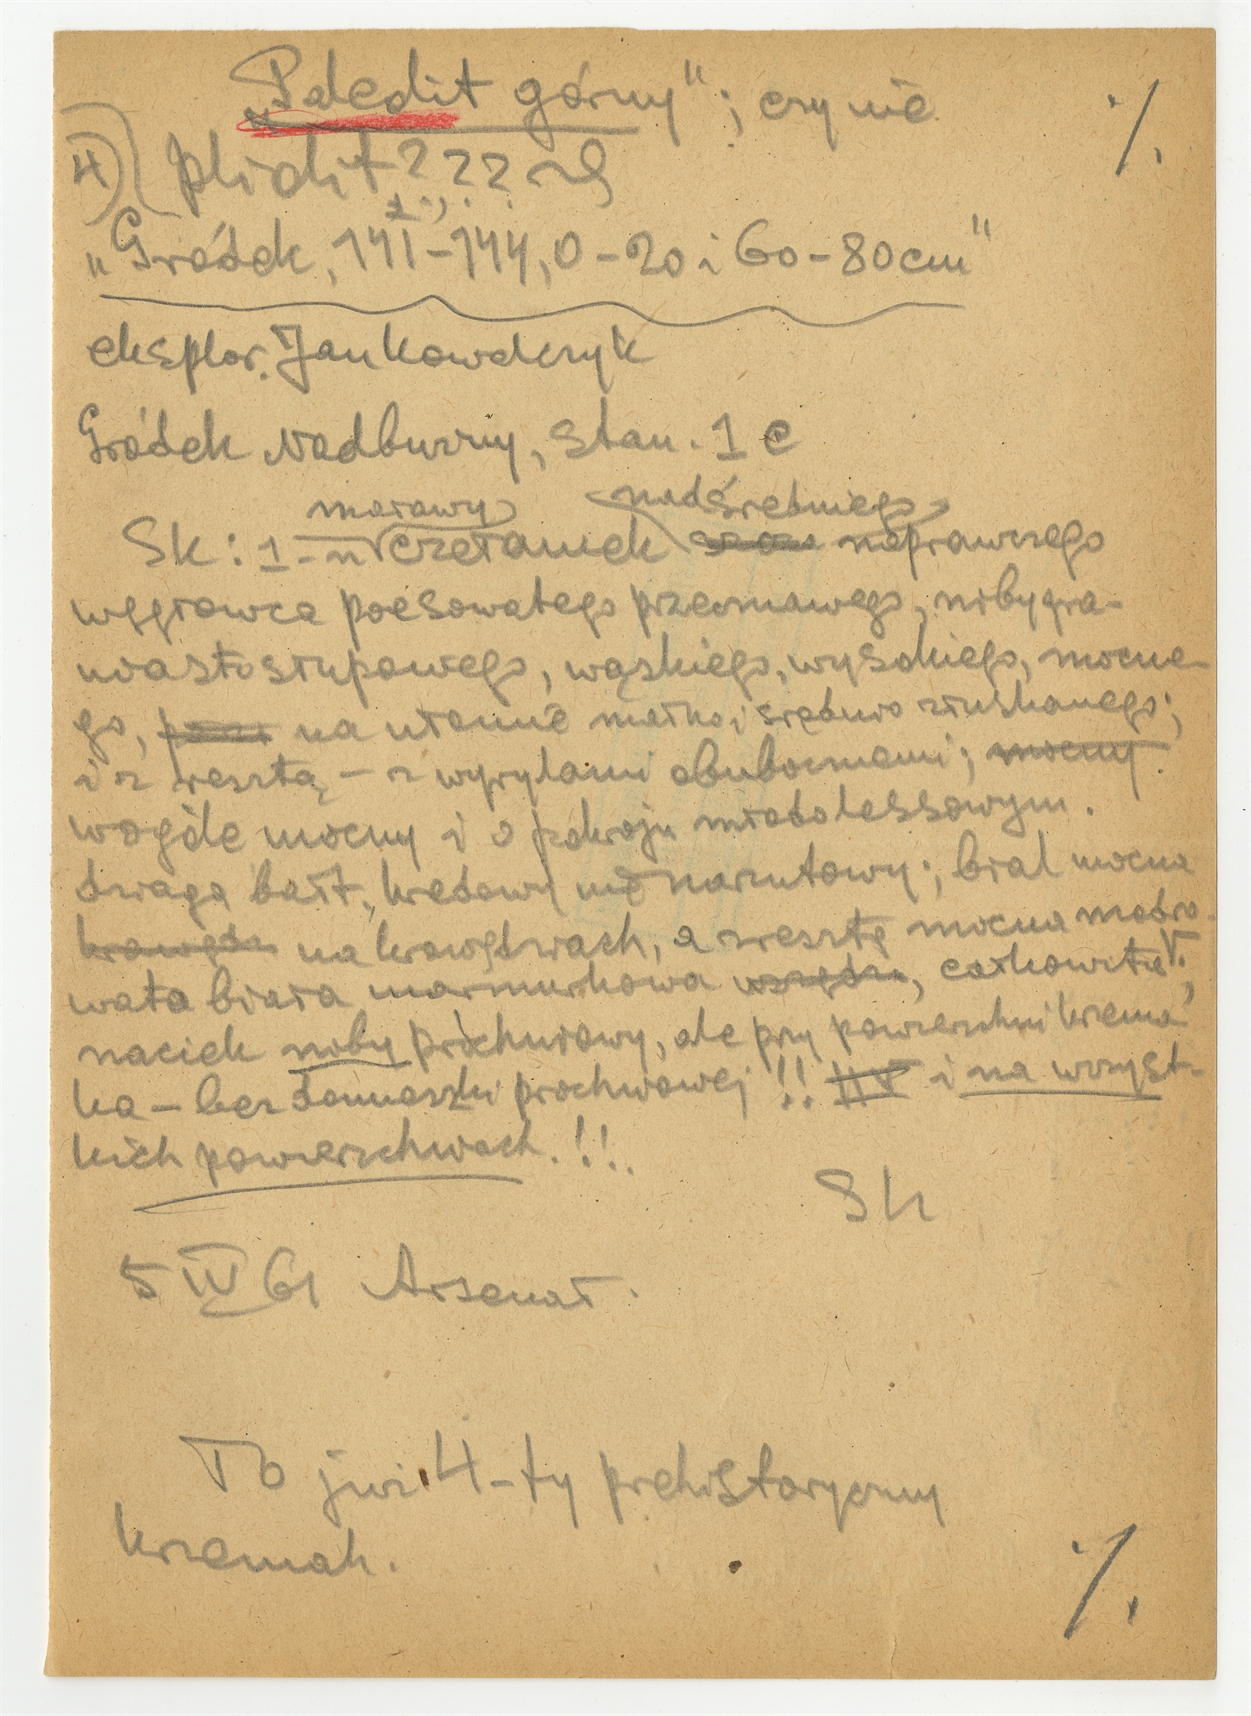 „Paleolit górny"; czy nie ./.
4) pliolit ????
„Gródek, 141-144, 0-20 i 60-80cm"
eksplor. Jankowdczyk
Gródek Nadbużny, stan. 1 C
matawy nadśredniego
Sk: 1 - człamek naprawczego
węgłowca poesowatego przecinawego, niby gra-
niastosłupowego, wąskiego, wysokiego, mocne-
go, na utamie matko i średnio złuskanego;
i z resztą – z wyrytami obubocznemi; mocny
wogóle mocny i o pokroju młodolessowym.
Uwaga bałt. kredowy nie narzutowy; biel mocna
krawędzi na krawędziach, a zresztą mocna modro-
wata biała marmurkowa, całkowite,
naciek niby próchnowy, ale przy powierzchni krzemie
ka – bez domieszki prochnowej !! i na wszyst-
kich powierzchniach. !!.
Sk
5 IV 61 Arsenał.
To już 4-ty prehistoryczny
krzemak.
./.